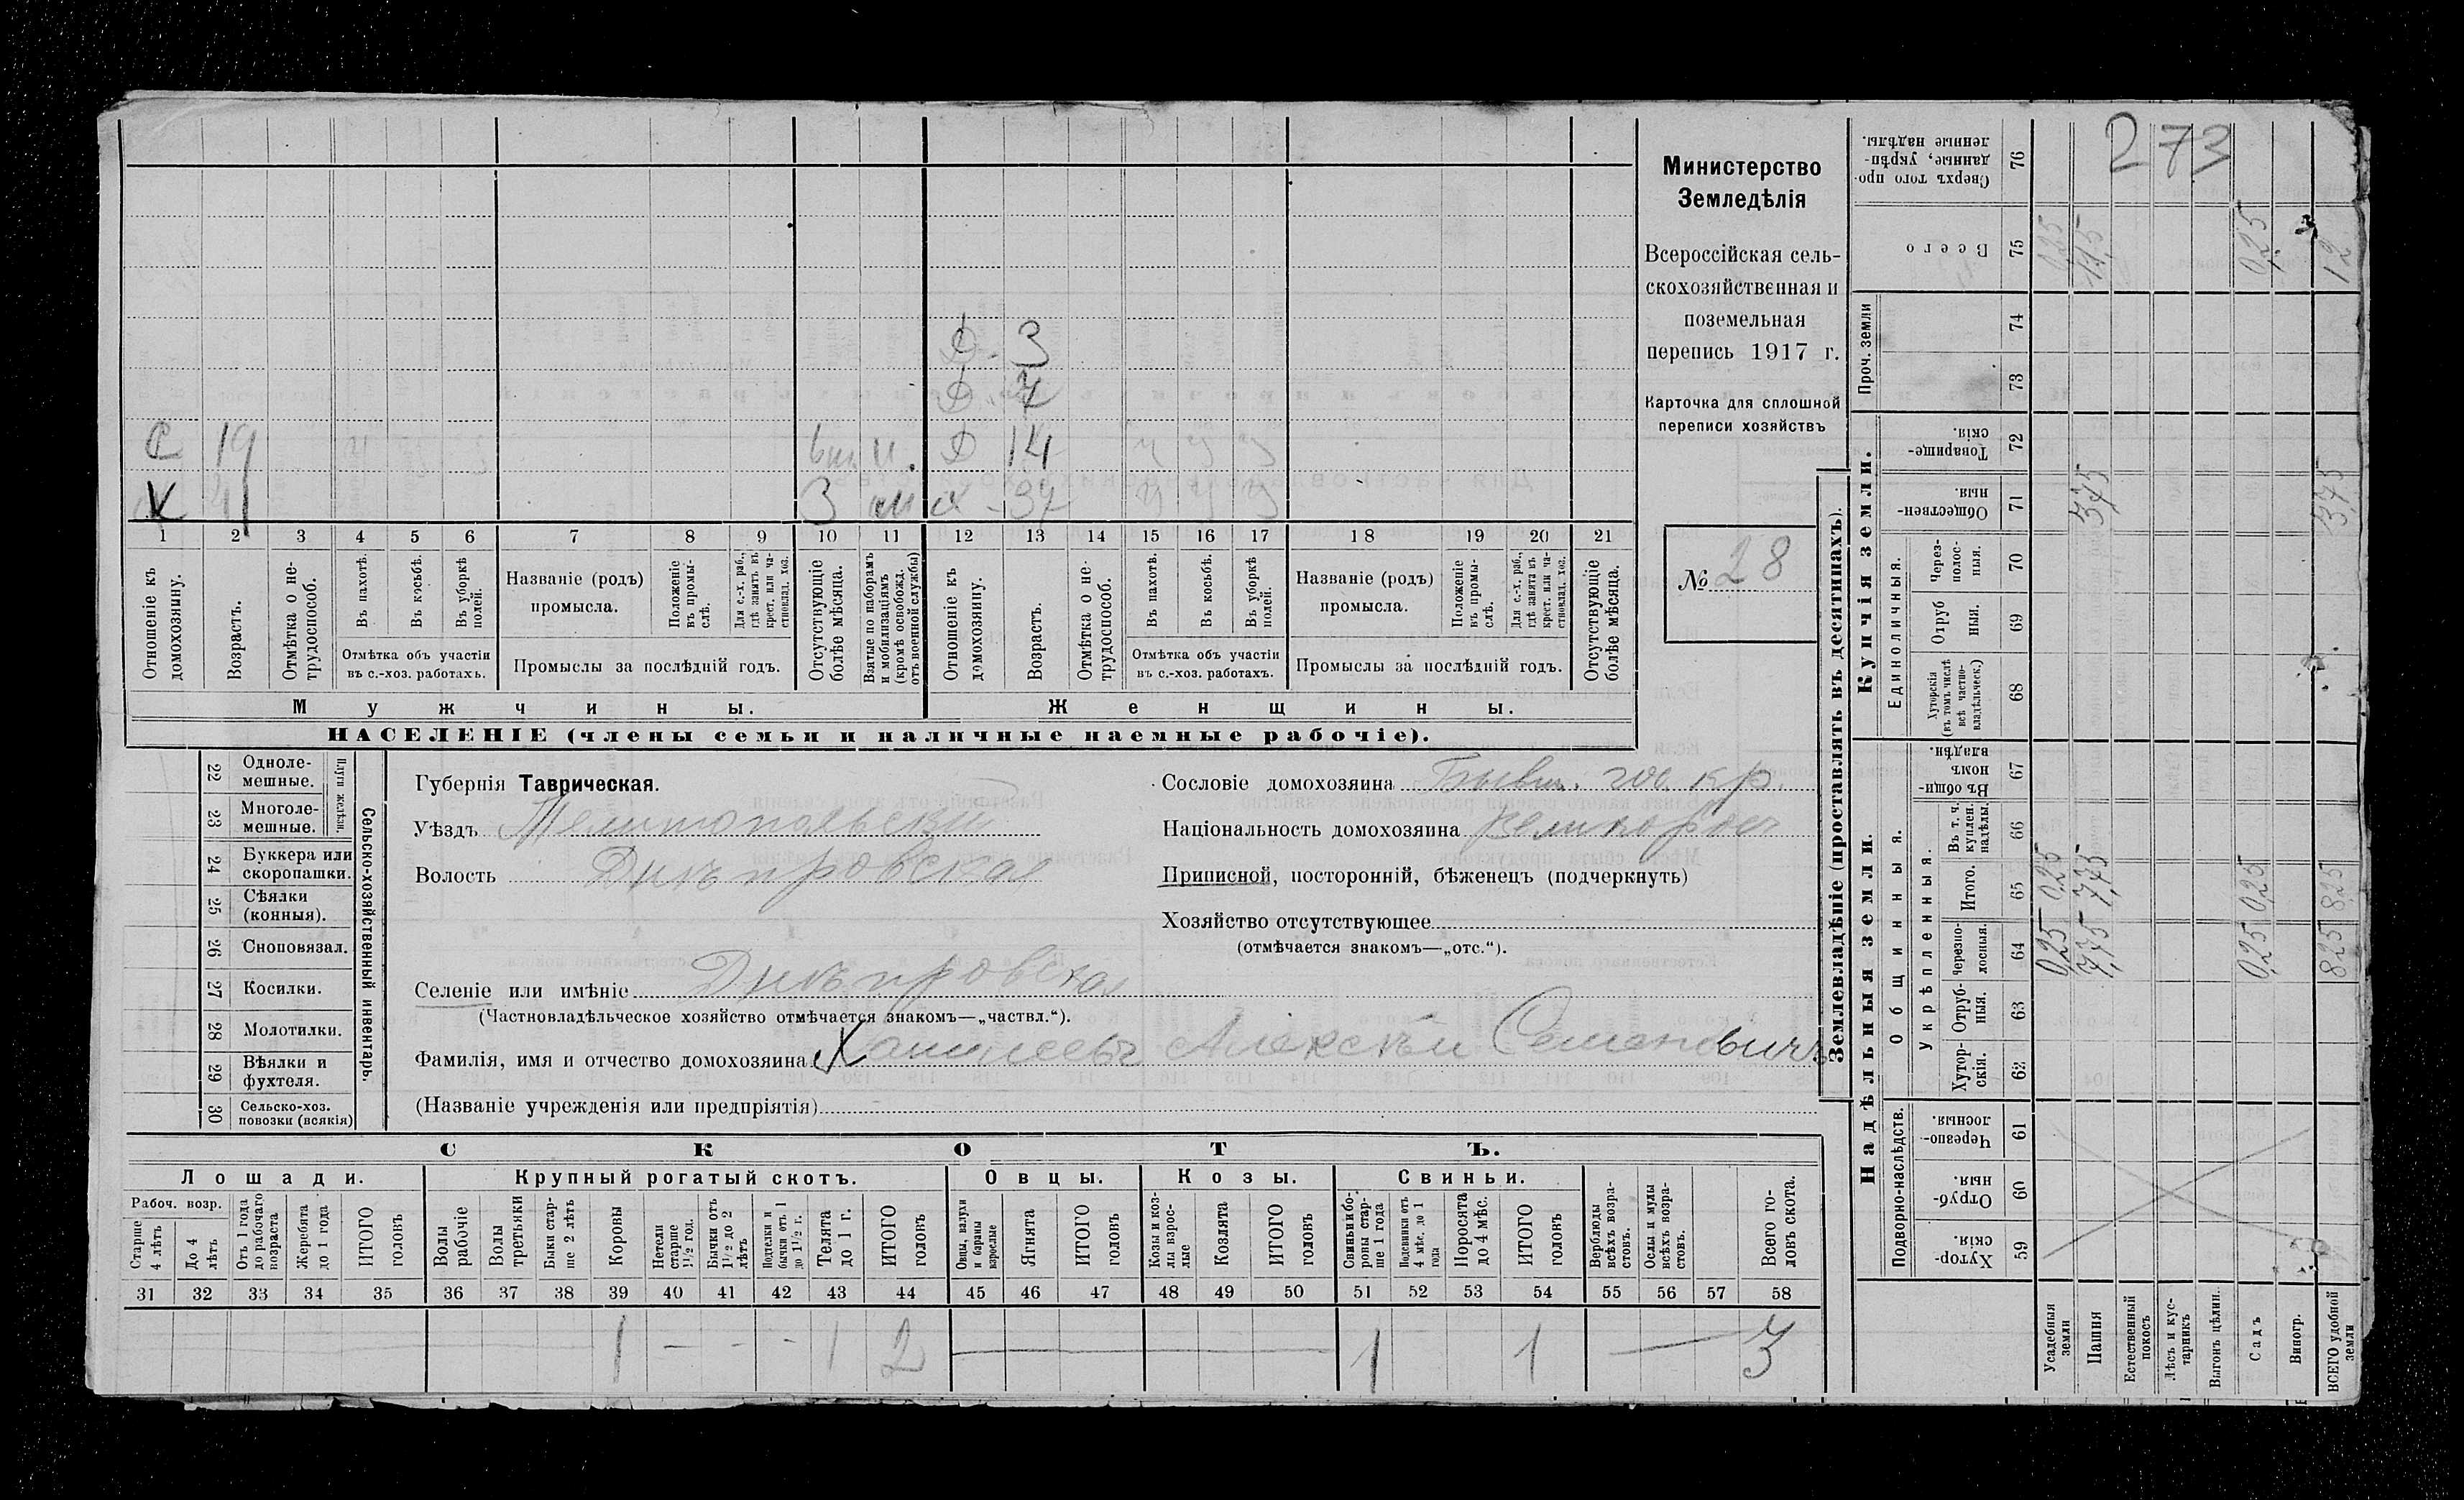 273
Министерство
Земледѣлія
Всероссійская сель-
скохозяйственная и
поземельная
перепись 1917 г.
Карточка для сплошной
переписи хозяйствъ
№ 28
Д. 3
Д. 7
С 19 Д 14 у у у
Х 41 З Х - 37 у у у
1 2 3 4 5 6 7 8 9 10 11 12 13 14 15 16 17 18 19 20 21
Отношеніе къ домохозяину.
Возрастъ.
Отмѣтка о не-трудоспособ.
Въ пахотѣ.
Въ косьбѣ.
Въ уборкѣ полей.
Отмѣтка объ участіи въ с.-хоз. работахъ.
Названіе (родъ) промысла.
Положеніе въ промы-слѣ.
Для с.-х. раб., гдѣ занятъ въ крест. или ча-стновлад. хоз.
Промыслы за послѣдній годъ.
Отсутствующіе болѣе мѣсяца.
Взятые по наборамъ и мобилизаціямъ (кромѣ освобожд. отъ военной службы)
Отношеніе къ домохозяину.
Возрастъ.
Отмѣтка о не-трудоспособ.
Въ пахотѣ.
Въ косьбѣ.
Въ уборкѣ полей.
Отмѣтка объ участіи въ с.-хоз. работахъ.
Названіе (родъ) промысла.
Положеніе въ промы-слѣ.
Для с.-х. раб., гдѣ занята въ крест. или ча-стновлад. хоз.
Промыслы за послѣдній годъ.
Отсутствующіе болѣе мѣсяца.
Мужчины. Женщины.
НАСЕЛЕНІЕ (члены семьи и наличные наемные рабочіе).
Сельско-хозяйственный инвентарь.
Плуги желѣзн.
22 Одноле-мешные.
23 Многоле-мешные.
24 Буккера или скоропашки.
25 Сѣялки (конныя).
26 Сноповязал.
27 Косилки.
28 Молотилки.
29 Вѣялки и фухтеля.
30 Сельско-хоз. повозки (всякія)
Губернія Таврическая.
Уѣздъ Мелитопольскій
Волость Днѣпровская
Селеніе или имѣніе Днѣпровска
(Частновладѣльческое хозяйство отмѣчается знакомъ—„частвл.“).
Фамилія, имя и отчество домохозяина Алексѣй Семеновичъ
(Названіе учрежденія или предпріятія)
Сословіе домохозяина Бывш. гос. кр.
Національность домохозяина великоросъ
Приписной, посторонній, бѣженецъ (подчеркнуть)
Хозяйство отсутствующее
(отмѣчается знакомъ—„отс.“).
СКОТЪ.
Лошади. Крупный рогатый скотъ. Овцы. Козы. Свиньи.
Рабоч. возр.
Старше 4 лѣтъ
До 4 лѣтъ
Отъ 1 года до рабочаго возраста
Жеребята до 1 года
ИТОГО головъ
Волы рабочіе
Волы третьяки
Быки стар-ше 2 лѣтъ
Коровы
Нетели старше 1½ год.
Бычки отъ 1½ до 2 лѣтъ
Подтелки и бычки отъ 1 до 1½ г.
Телята до 1 г.
ИТОГО головъ
Овцы, валухи и бараны взрослые
Ягнята
ИТОГО головъ
Козы и коз-лы взрос-лые
Козлята
ИТОГО головъ
Свиньи и бо-ровы стар-ше 1 года
Подсвинки отъ 4 мѣс. до 1 года
Поросята до 4 мѣс.
ИТОГО головъ
Верблюды всѣхъ возра-стовъ.
Ослы и мулы всѣхъ возра-стовъ.
Всего го-ловъ скота.
31 32 33 34 35 36 37 38 39 40 41 42 43 44 45 46 47 48 49 50 51 52 53 54 55 56 57 58
1 - - - 1 2 1 1 3
Землевладѣніе (проставлять въ десятинахъ).
Надѣльныя земли. Купчія земли. Проч. земли
Подворно-наслѣдств. Общинныя. Укрѣпленныя. Единоличныя.
Хутор-скія. 59
Отруб-ныя. 60
Черезпо-лосныя. 61
Хутор-скія. 62
Отруб-ныя. 63
Черезпо-лосныя. 64
Итого. 65
Въ т. ч. куплен. надѣлы. 66
Въ общи-номъ владѣн. 67
Хуторскія (въ томъ числѣ всѣ частно-владѣльческ.) 68
Отруб ныя. 69
Через-полос-ныя. 70
Обществен-ныя. 71
Товарище-скія. 72
73
74
Всего 75
Сверхъ того про-данные, укрѣп-ленные надѣлы. 76
Усадебныя земли 0,25 0,25 0,25
Пашня 7,75 7,75 3,75 11,5
Естественный покосъ
Лѣсъ и кус-тарникъ
Выгонъ цѣлин.
Садъ 0,25 0,25 0,25
Виногр.
ВСЕГО удобной земли 8,25 8,25 3,75 12